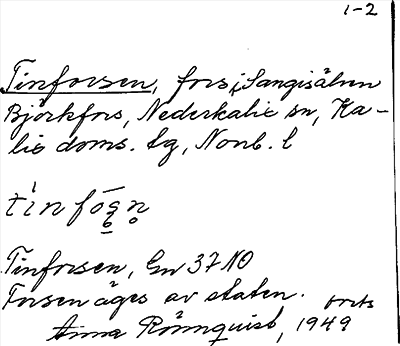 1-2
Tinforsen, fors i Sangisälven
Björkfors, Nederkalix sn, Ka-
lix doms. lg, Norrb. l
Tinforsen, Gn 37 NO
Forsen äges av staten. forts
Anna Rönnquist, 1949